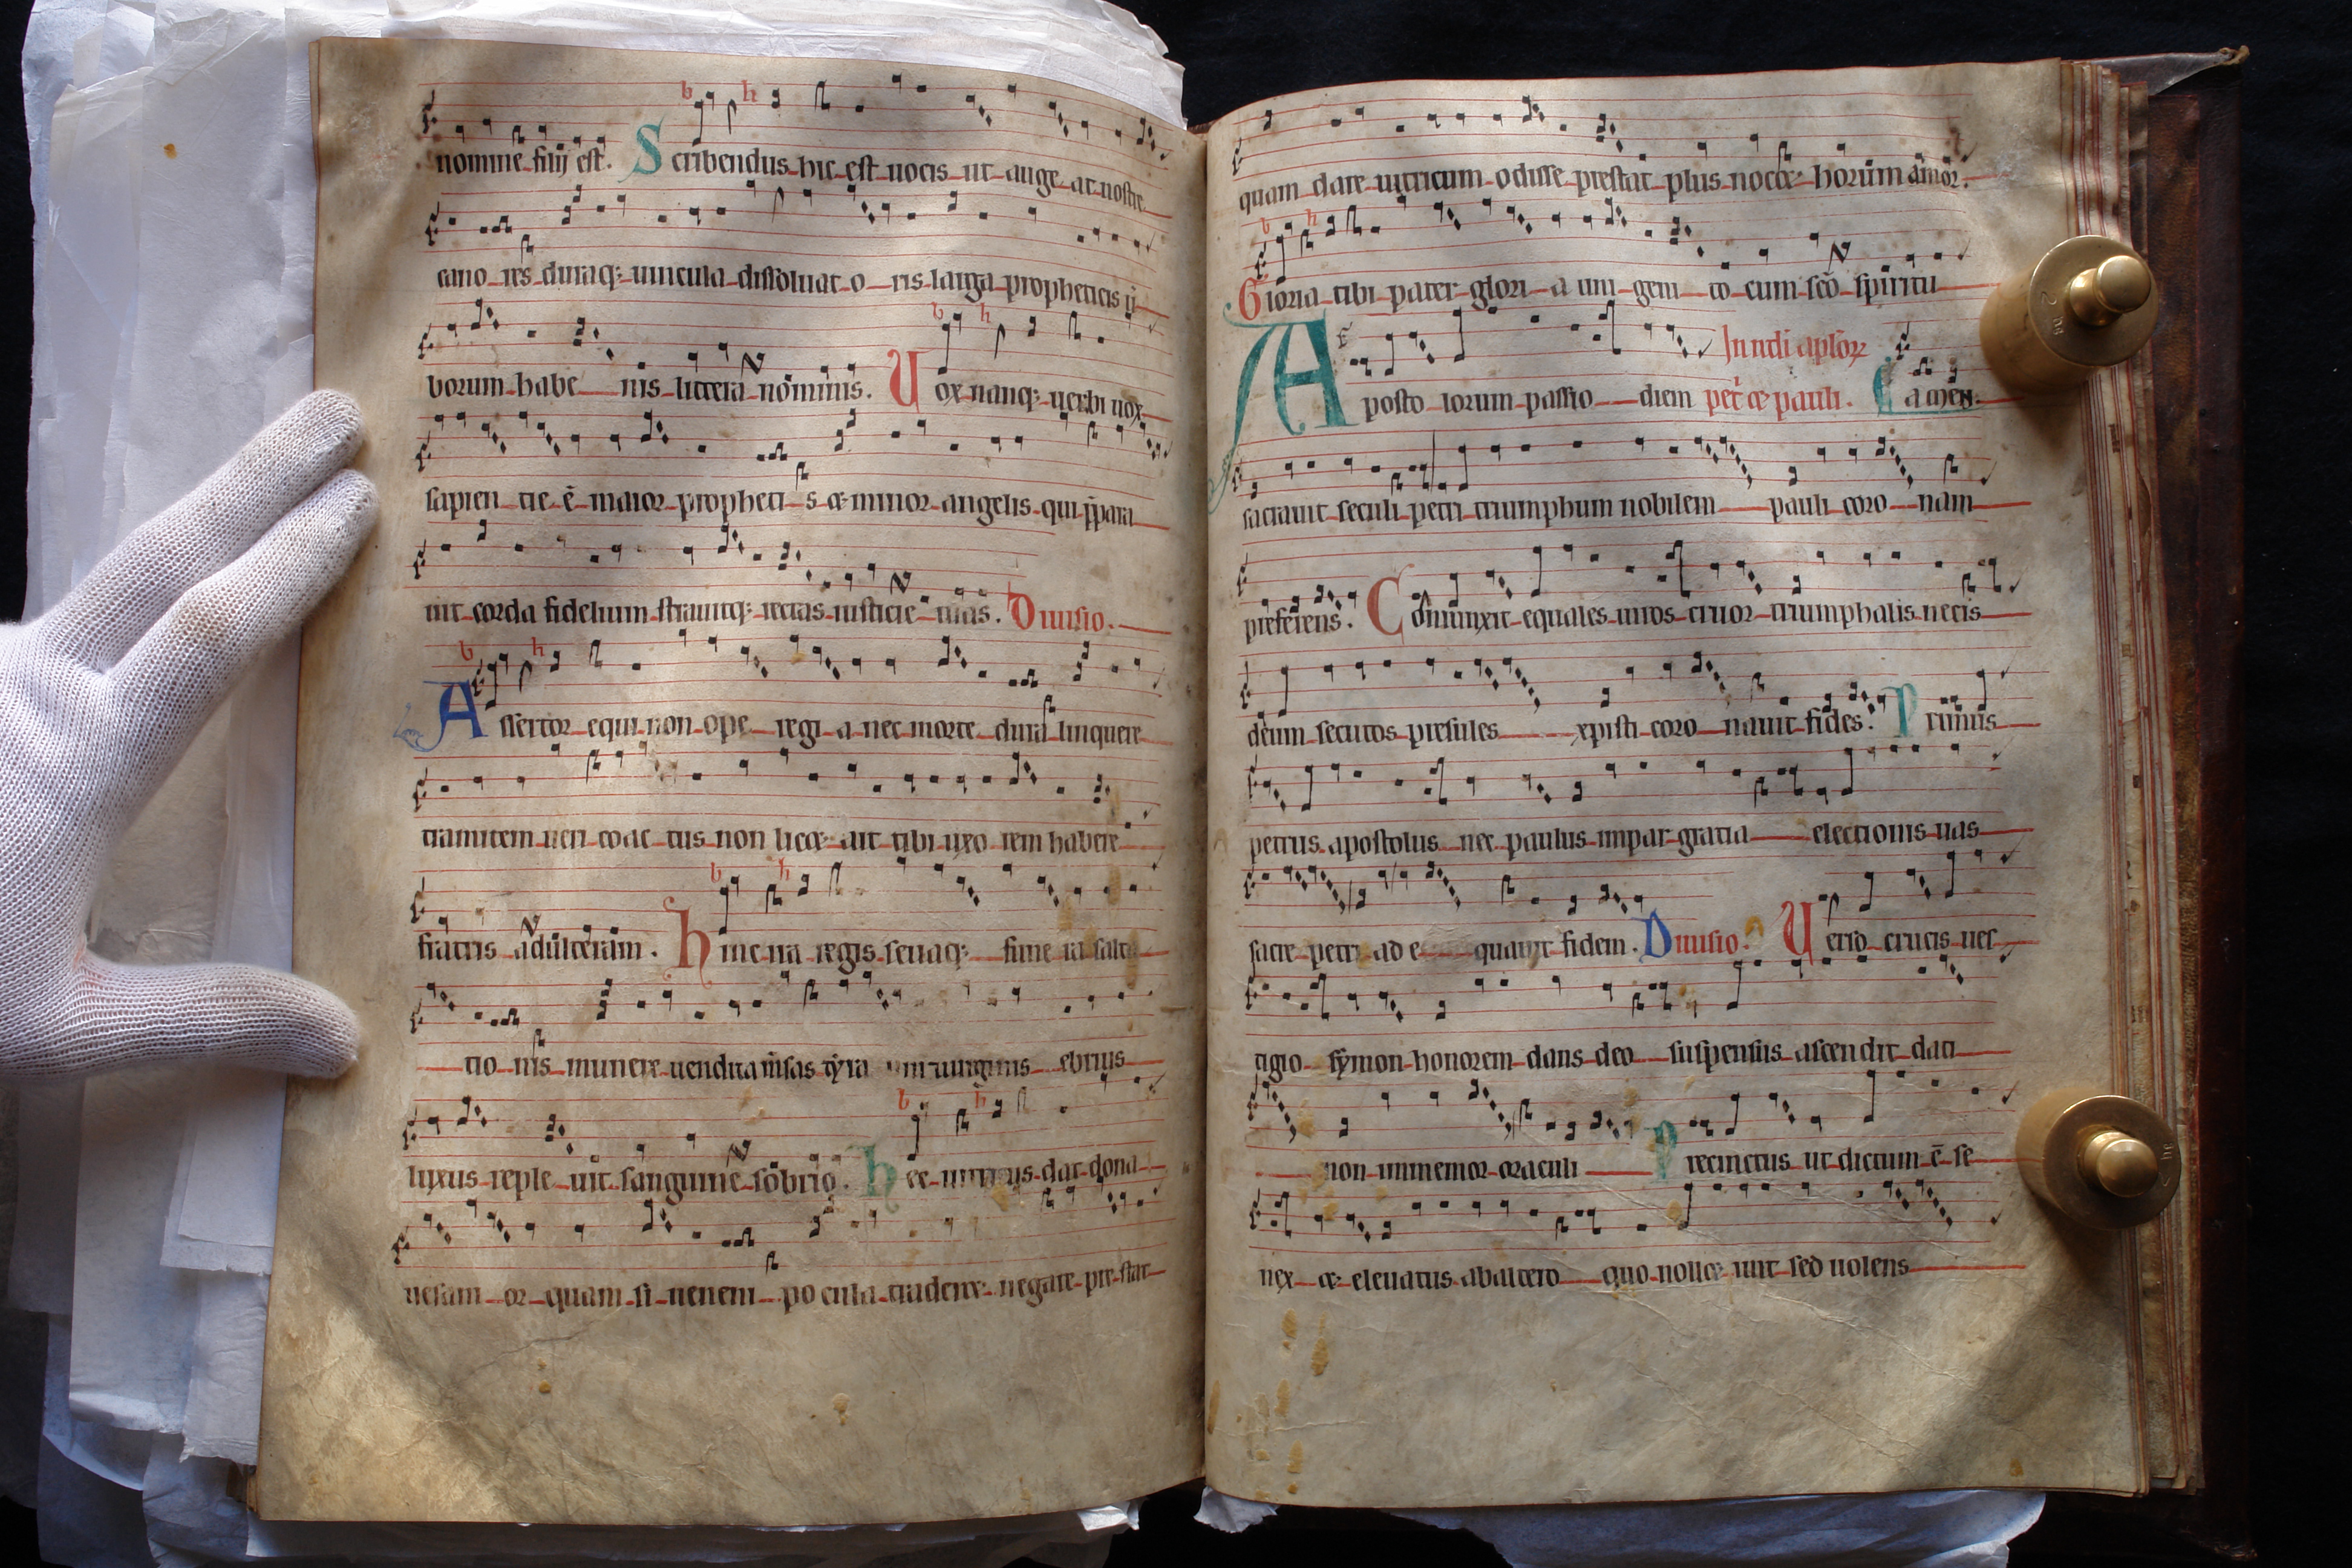 nomine filij est. Scribendus hic est uocis ut auge at nostre
cano res duraq; uincula dissoluat o ris larga propheticis
borum habe nis littera nominis. Uox nanq; uerbi uox
sapien tie ē maior propheti s & minor angelis qui p̄para
uit corda fidelium strauitq; rectas iusticie uias. Diuisio.
b h
Assertor equi non ope regi a nec morte dura linquere
tramitem ueri coac tus non licet ait tibi uxo rem habere
fratris adulteram. hinc ira regis seuaq; fune ta salta
tio nis munere uendita ebrius
luxus reple uit sanguine sobrio. hec dat dona
uesani or quam si neneni pocula traderet negare pre stat
quam dare uitricum odisse prestat plus nocet horum amor.
b h
Gloria tibi pater glori a uni geni to cum sc̄o spiritu
In nt̄li aptōꝝ
Aposto lorum passio diem pet̄ & pauli. amen.
sacrauit seculi petri triumphum nobilem pauli coro nam
preferens. Coniunxit equales uiros cruor triumphalis necis
deum secutos presules xpisti coro nauit fides. Primus
petrus apostolus nec paulus impar gratia electionis uas
sacre petri ad e quauit fidem. Diuisio. Uerso crucis ues
tigio symon honorem dans deo suspensus ascendit dati
non inmemor oraculi Precinctus ut dictum ē se
nex & eleuatus abaltero quo nollet iuit sed uolens